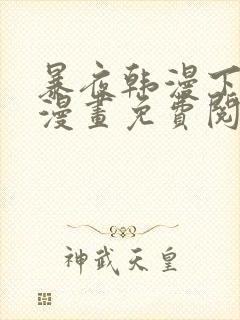 暴夜韩漫下
漫畫免費閱
神武天皇